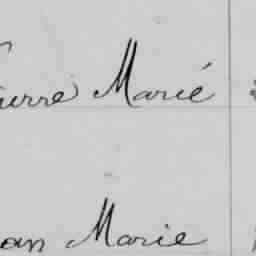 ierre Marie
ean Marie